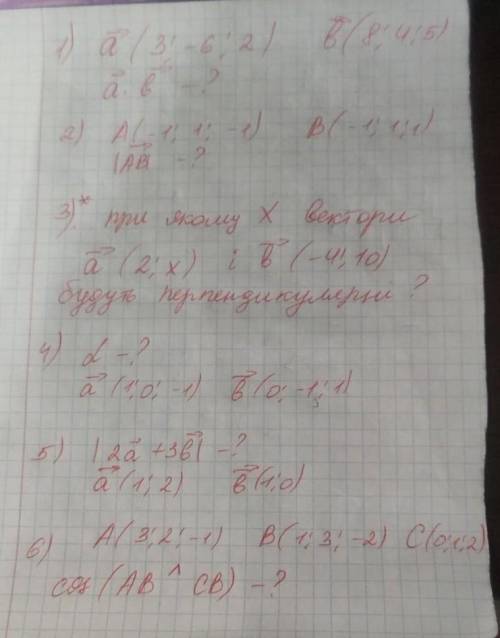 1) a⃗ (3; -6; 2) b⃗ (8; 4; 5)
a⃗ · b⃗ - ?
2) A(-1; 1; -1) B(-1; 1; 1)
|AB⃗| - ?
3)* при якому x вектори
a⃗ (2; x) і b⃗ (-4; 10)
будуть перпендикулярні ?
4) α - ?
a⃗ (1; 0; -1) b⃗ (0; -1; 1)
5) |2a⃗ + 3b⃗| - ?
a⃗ (1; 2) b⃗ (1; 0)
6) A(3; 2; -1) B(1; 3; -2) C(0; 1; 2)
cos (AB ^ CB) - ?